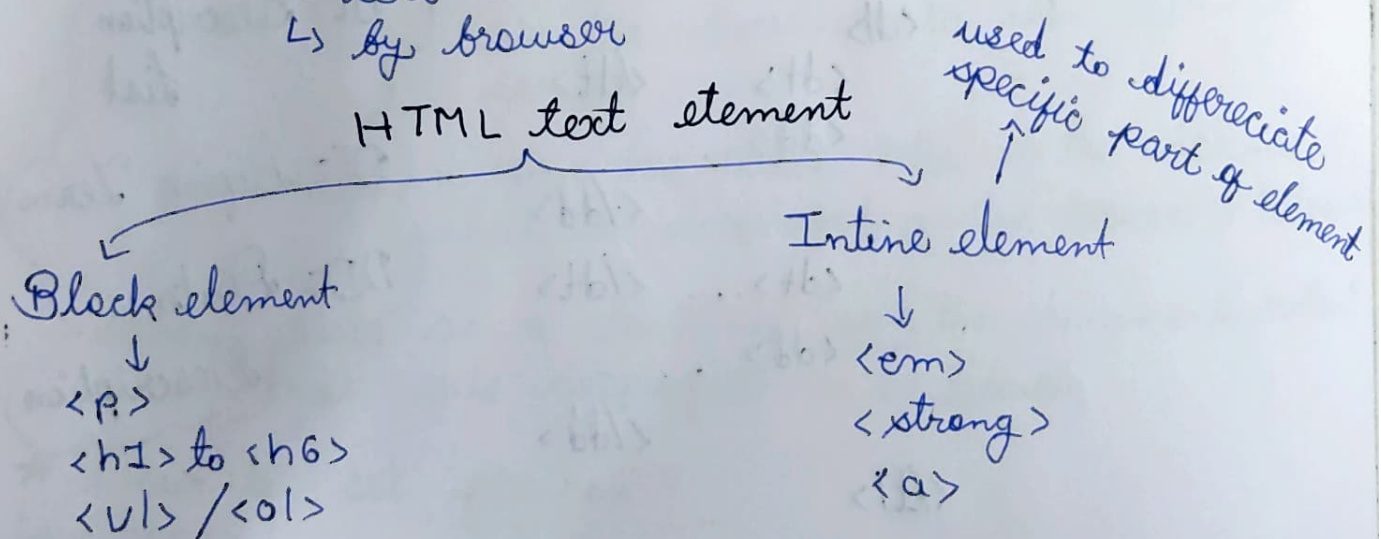 ↳ by browser
HTML text etement
used to differeciate
specific part of element
Block element
↓
<p>
<h1> to <h6>
<ul> / <ol>
Intine element
↓
<em>
<strong>
<a>